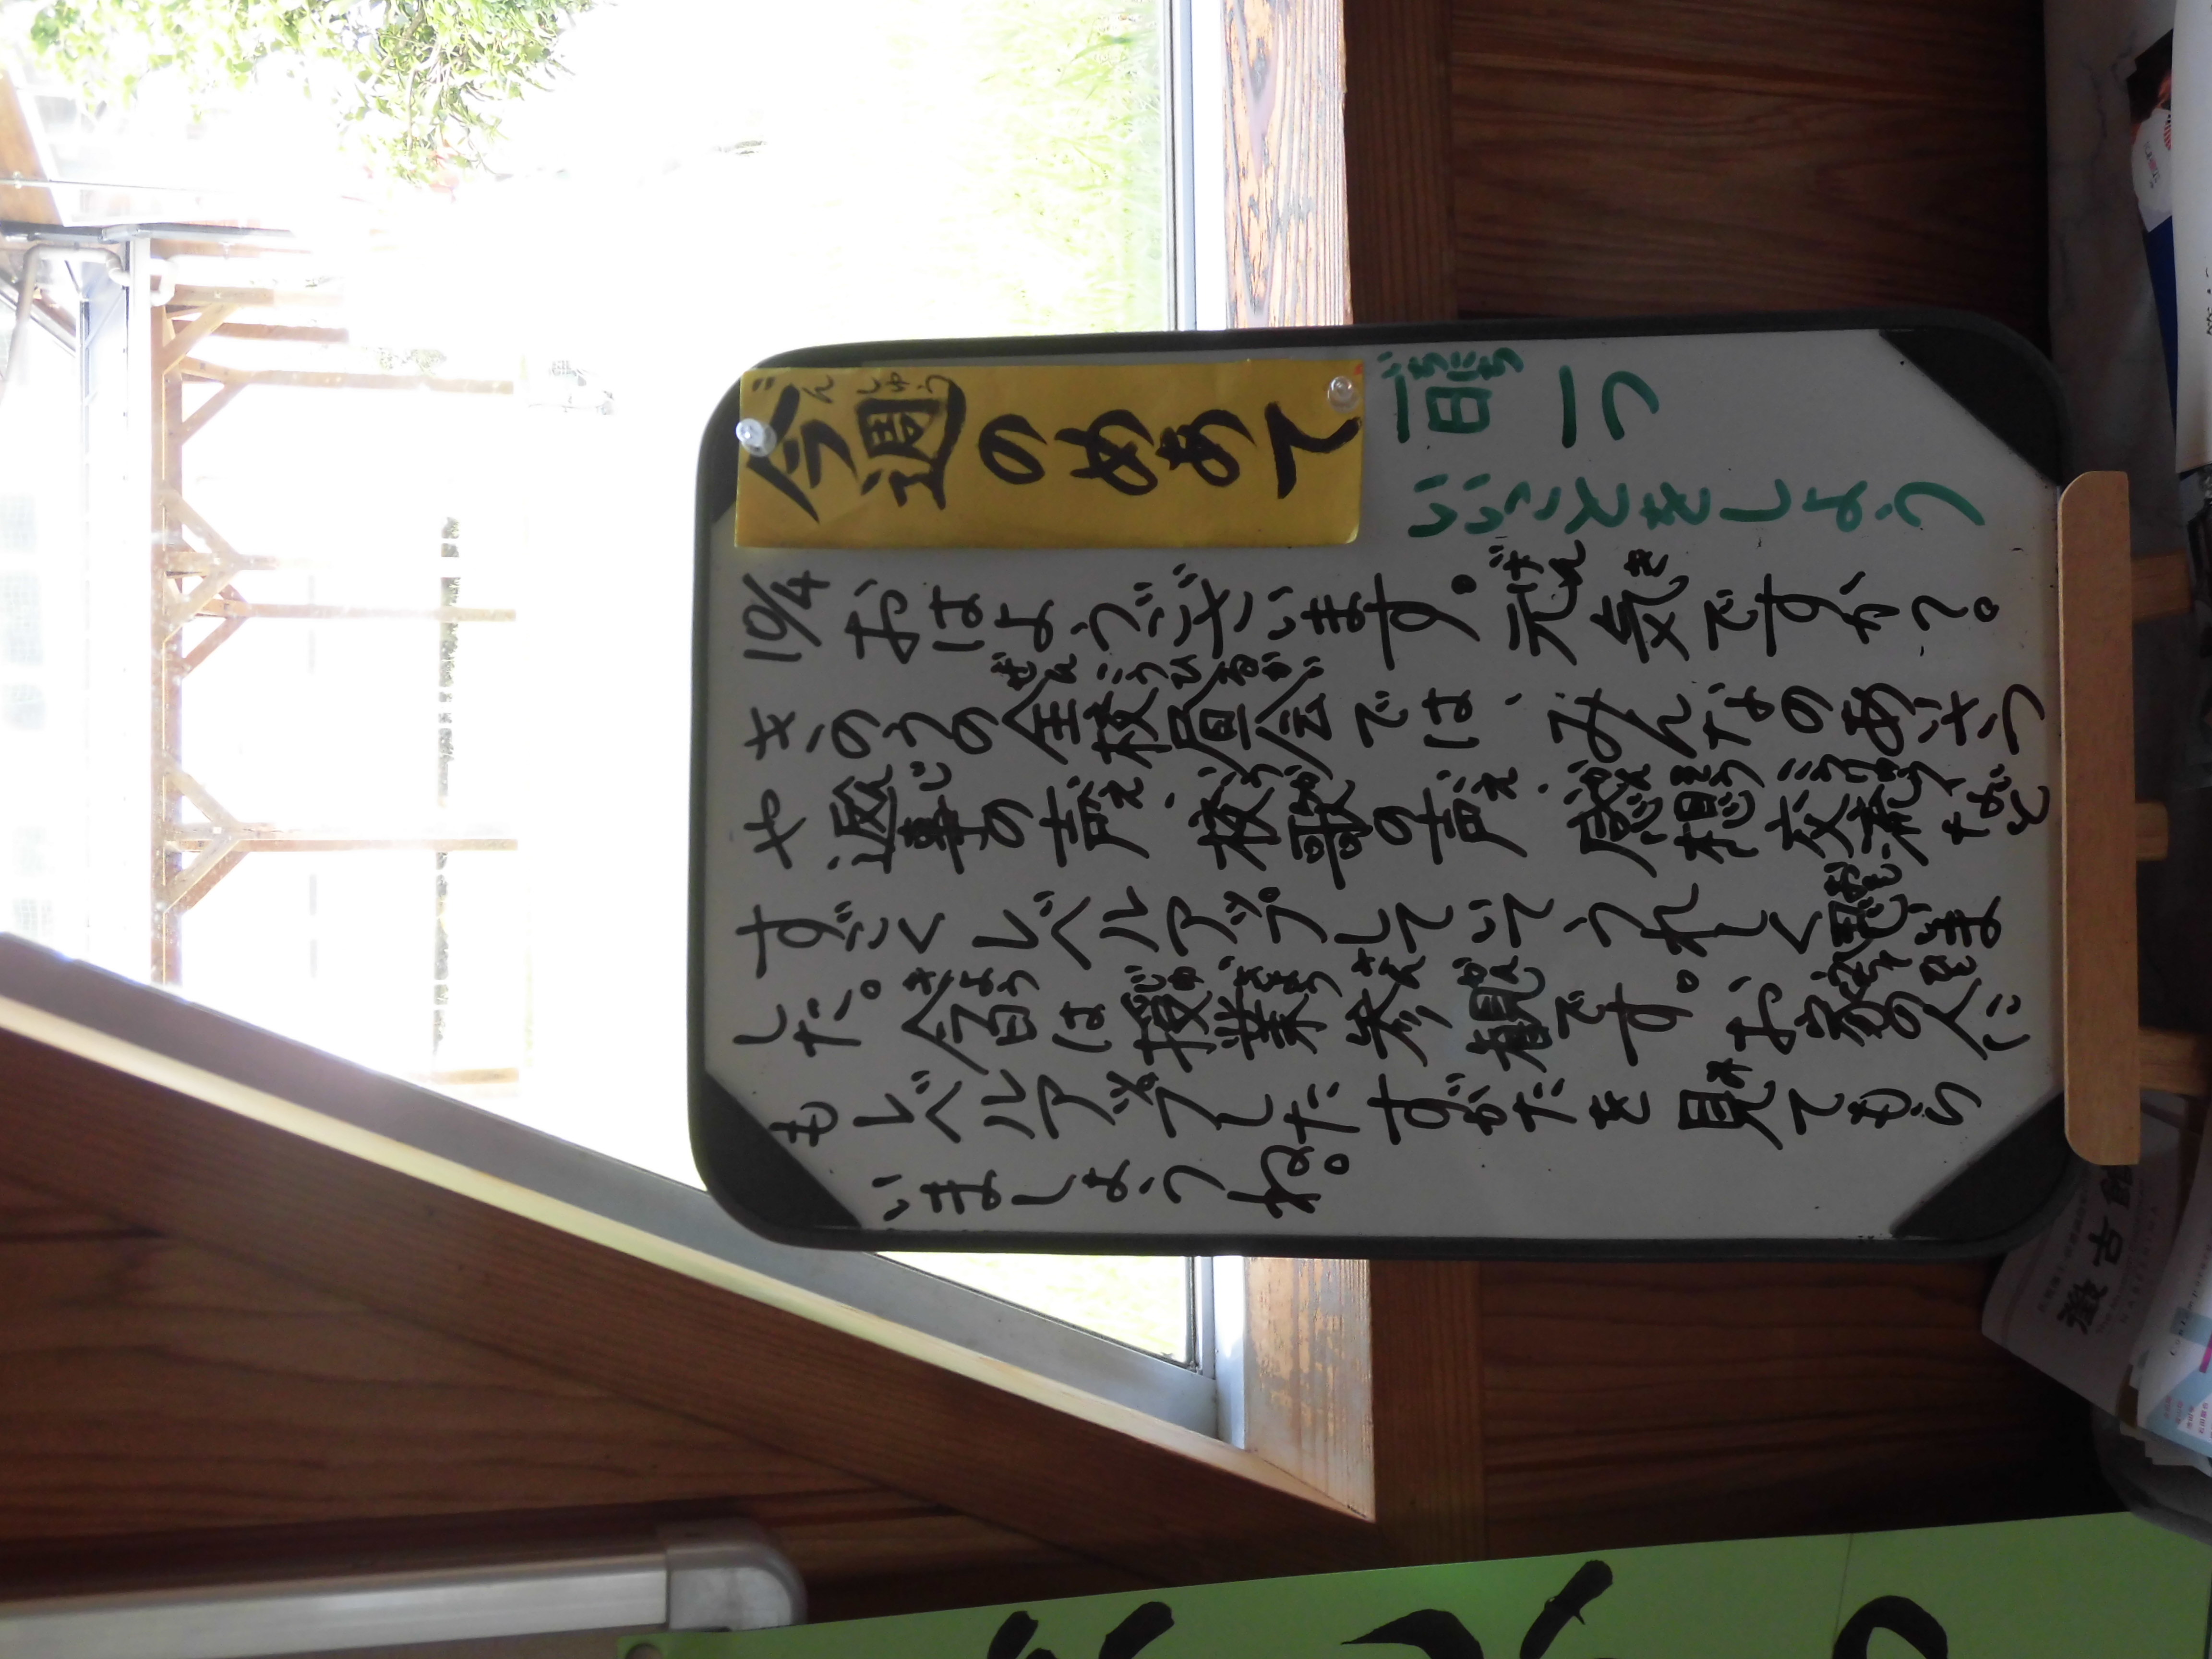 今週のめあて
一日一つ
いいことをしよう
10/4 おはようございます。元気ですか?。
きのうの全校昼会では、みんなのあいさつ
や返事の声、校歌の声、感想交流など
すごくレベルアップしていてうれしく思いま
した。今日は授業参観です。お家の人に
もレベルアップしたすがたを見てもら
いましょうね。